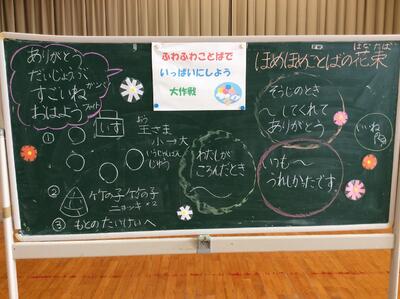 ありがとう
だいじょうぶ
すごいね ガンバ
おはよう ファイト
ふわふわことばで
いっぱいにしよう
大作戦
はなたば
ほめほめことばの花束
そうじのとき
〜してくれて
ありがとう
いいね
わたしが
ころんだとき
いつも〜
うれしかったです
① いす
おう
王さま
小→大
じゅう
② 竹の子 竹の子
ニョッキ×2
③ もとのたいけいへ